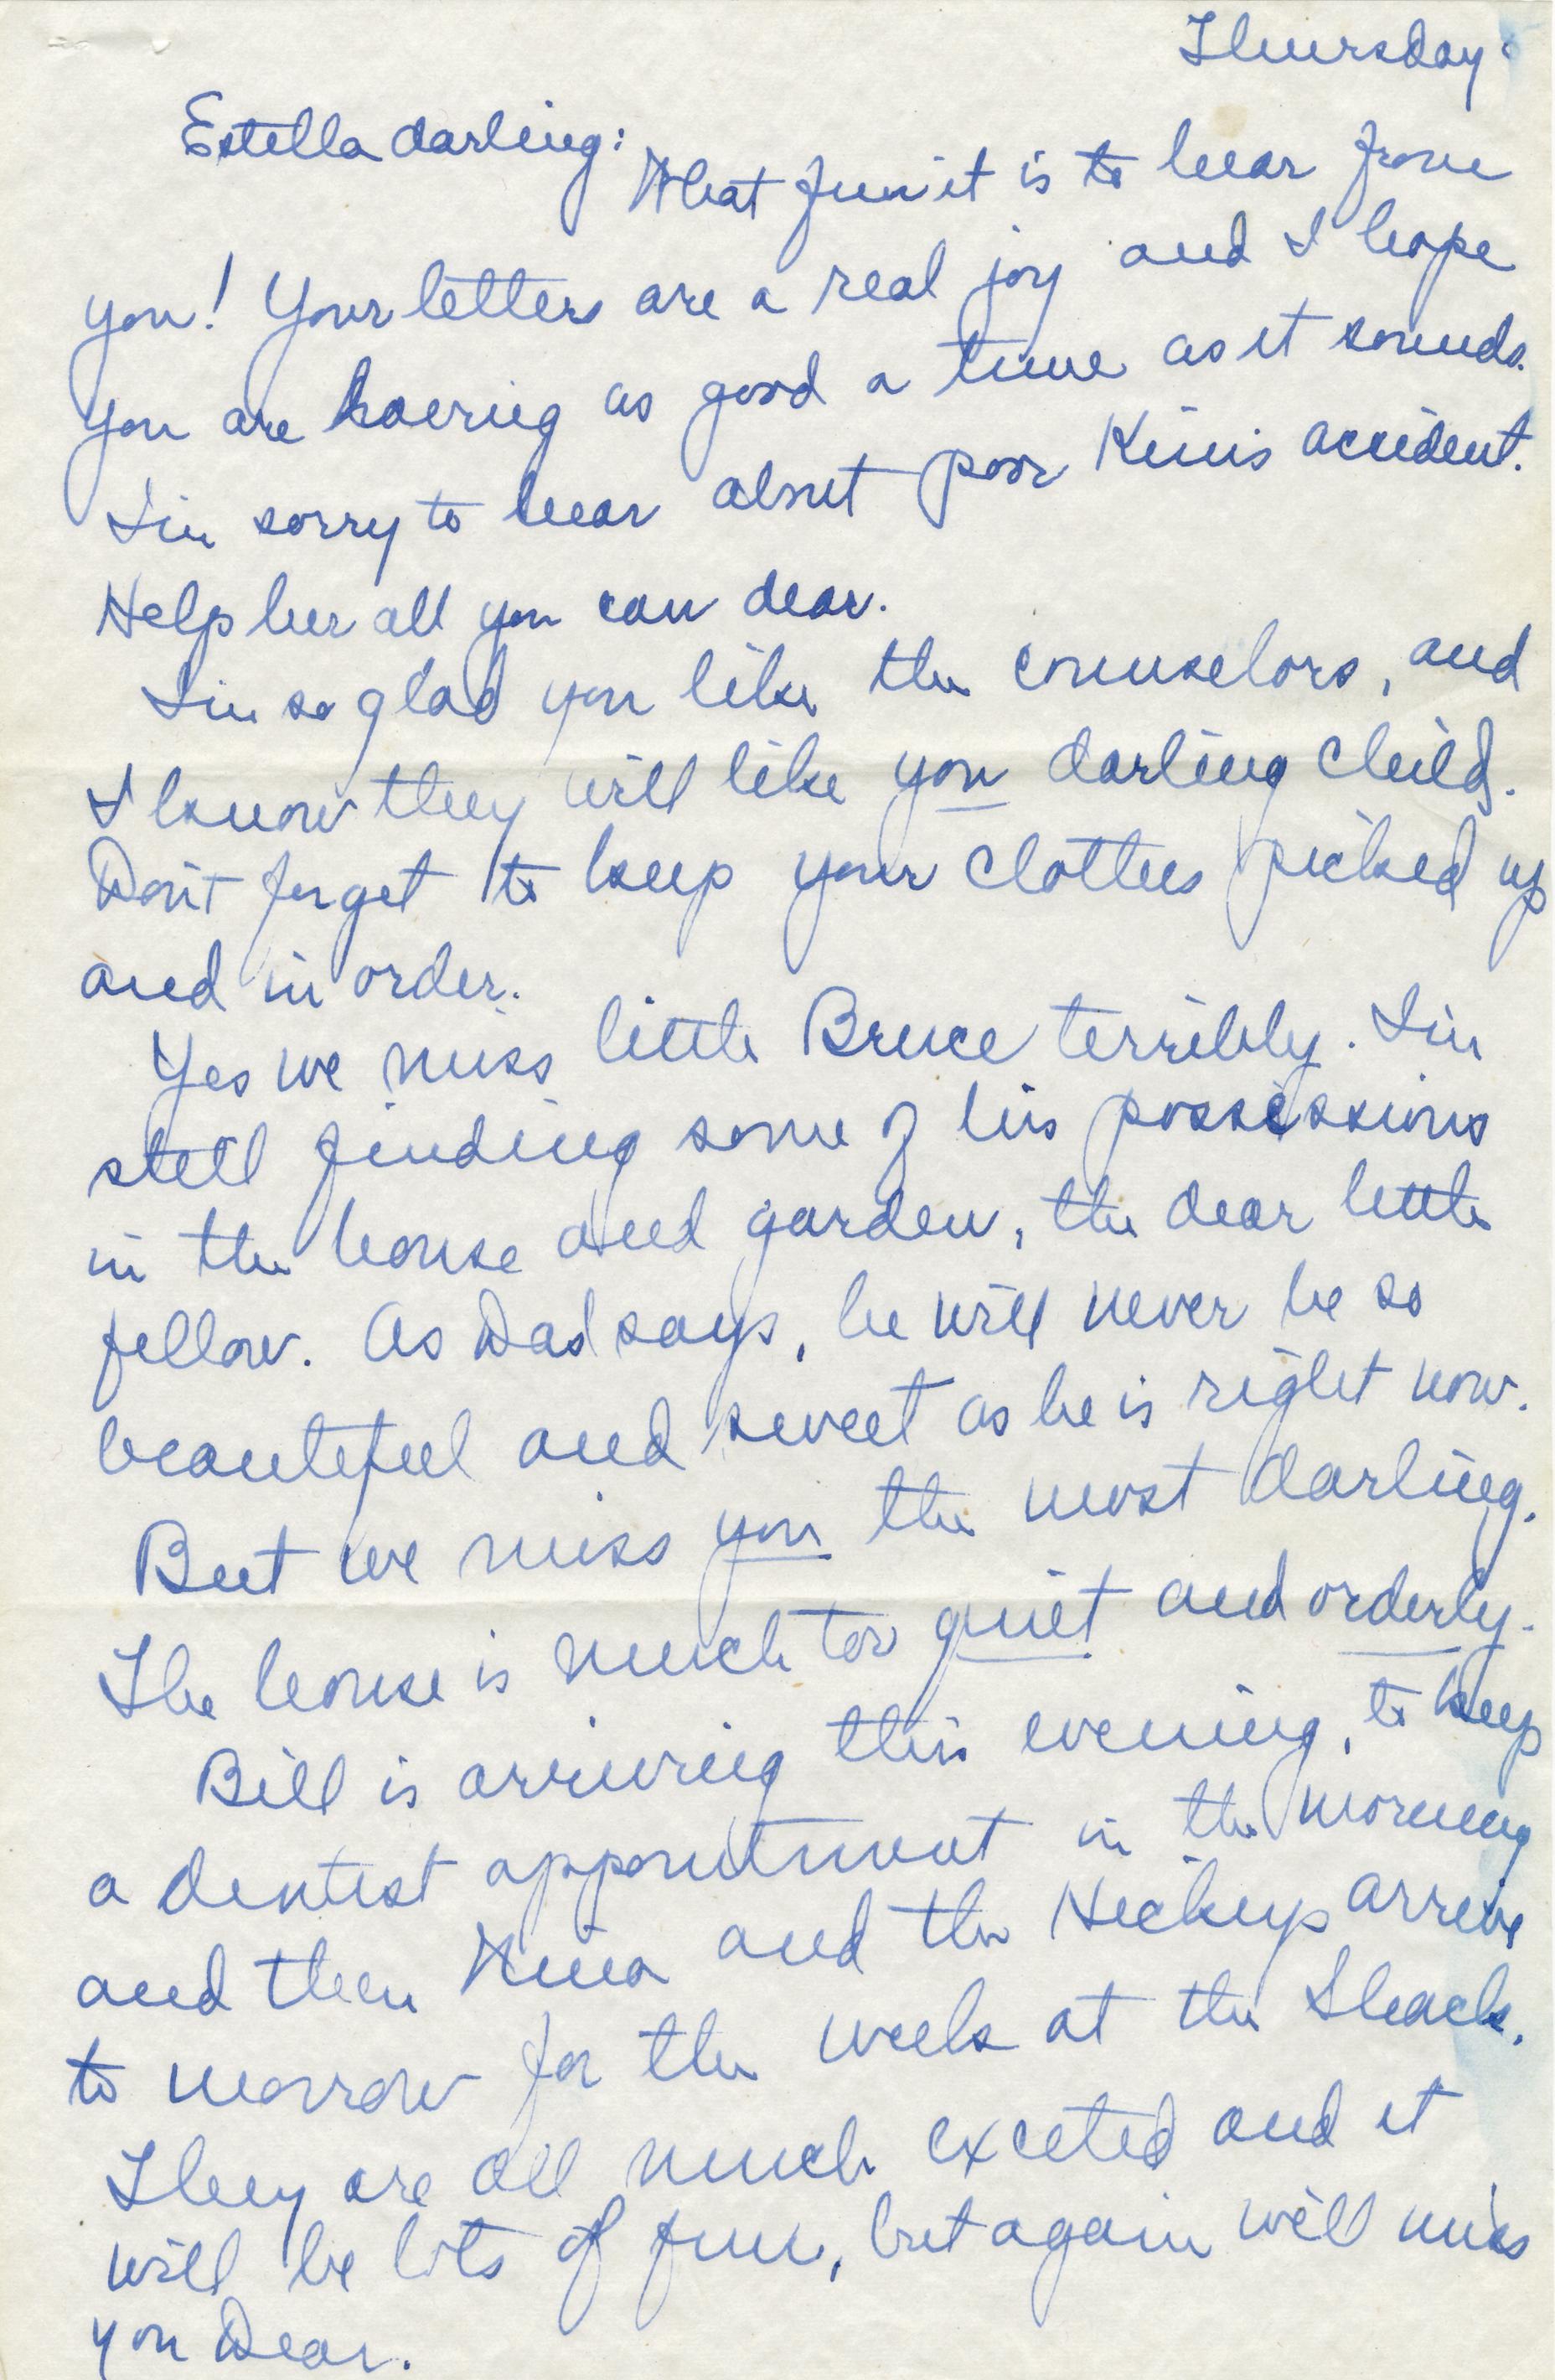 Thursday:
Estella darling:
What fun it is to hear from
you! Your letters are a real joy and I hope
you are having as good a time as it sounds.
I'm sorry to hear about poor Kim's accident.
Help her all you can dear.
I'm so glad you like the counselors, and
I know they will like you darling child.
Don't forget to keep your clothes picked up
and in order.
Yes we miss little Bruce terribly. I'm
still finding some of his possessions
in the house and garden, the dear little
fellow. As Dad says, he will never be so
beautiful and sweet as he is right now.
But we miss you the most darling.
The house is much too quiet and orderly.
Bill is arriving this evening, to keep
a dentist appointment in the morning
and then and the Hickeys arrive
to morrow for the week at the Shack.
They are all much excited and it
will be lots of fun, but again will miss
you Dear.